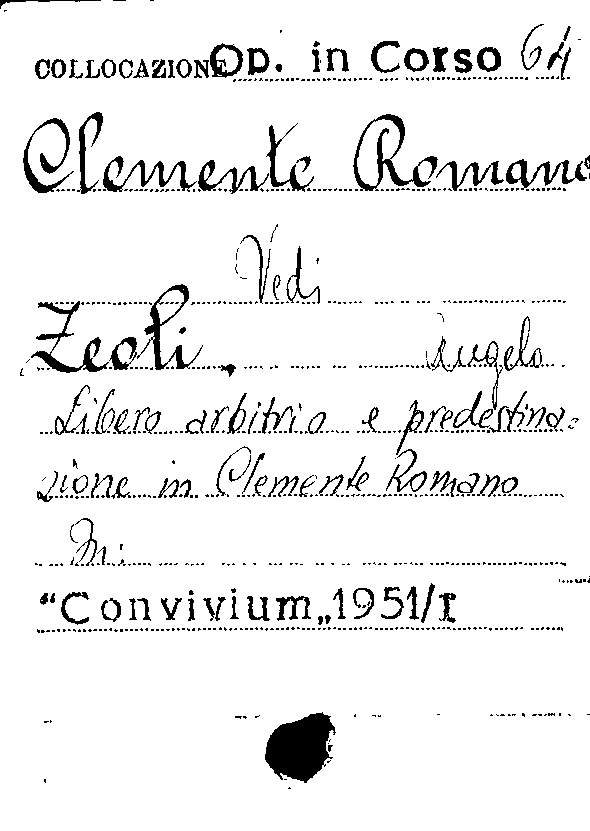 COLLOCAZIONE Op. in Corso 64
Clemente Romano
Vedi
Zeoli, Angelo
Libero arbitrio e predestina=
zione in Clemente Romano
In:
“Convivium„ 1951/I